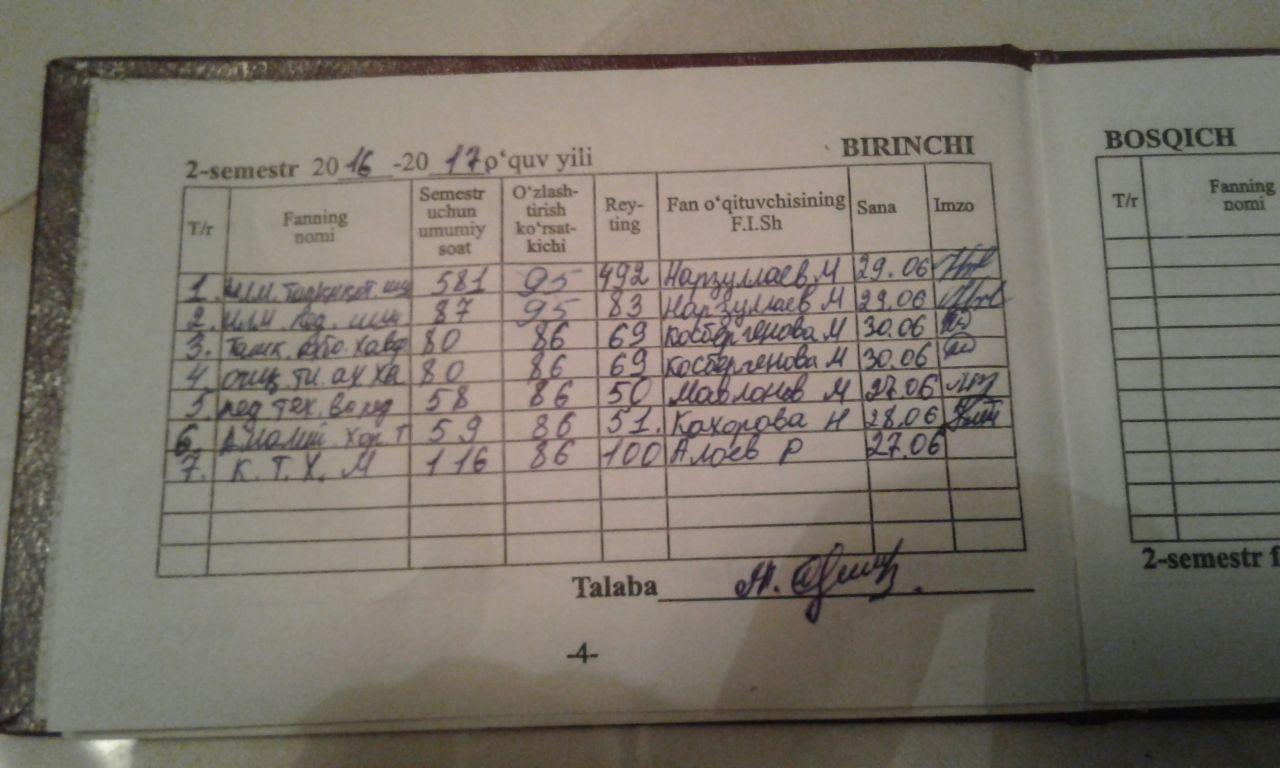 2-semestr 2016-2017 o‘quv yili BIRINCHI
T/r Fanning nomi Semestr uchun umumiy soat O‘zlash-tirish ko‘rsat-kichi Rey-ting Fan o‘qituvchisining F.I.Sh Sana Imzo
1. илм. 581 95 492 Нарзуллаев М 29.06
2. илм. пед. 87 95 83 Нарзуллаев М 29.06
3. 80 86 69 Косбергенова М 30.06
4. 80 86 69 Косбергенова М 30.06
5 пед тех. ва пед 58 86 50 Мавлонов М 27.06
6. Амалий хор. т 59 86 51. Кахорова Н 28.06
7. К. Т. Х. М 116 86 100 Алоев Р 27.06
Talaba
-4-
BOSQICH
T/r Fanning nomi
2-semestr f